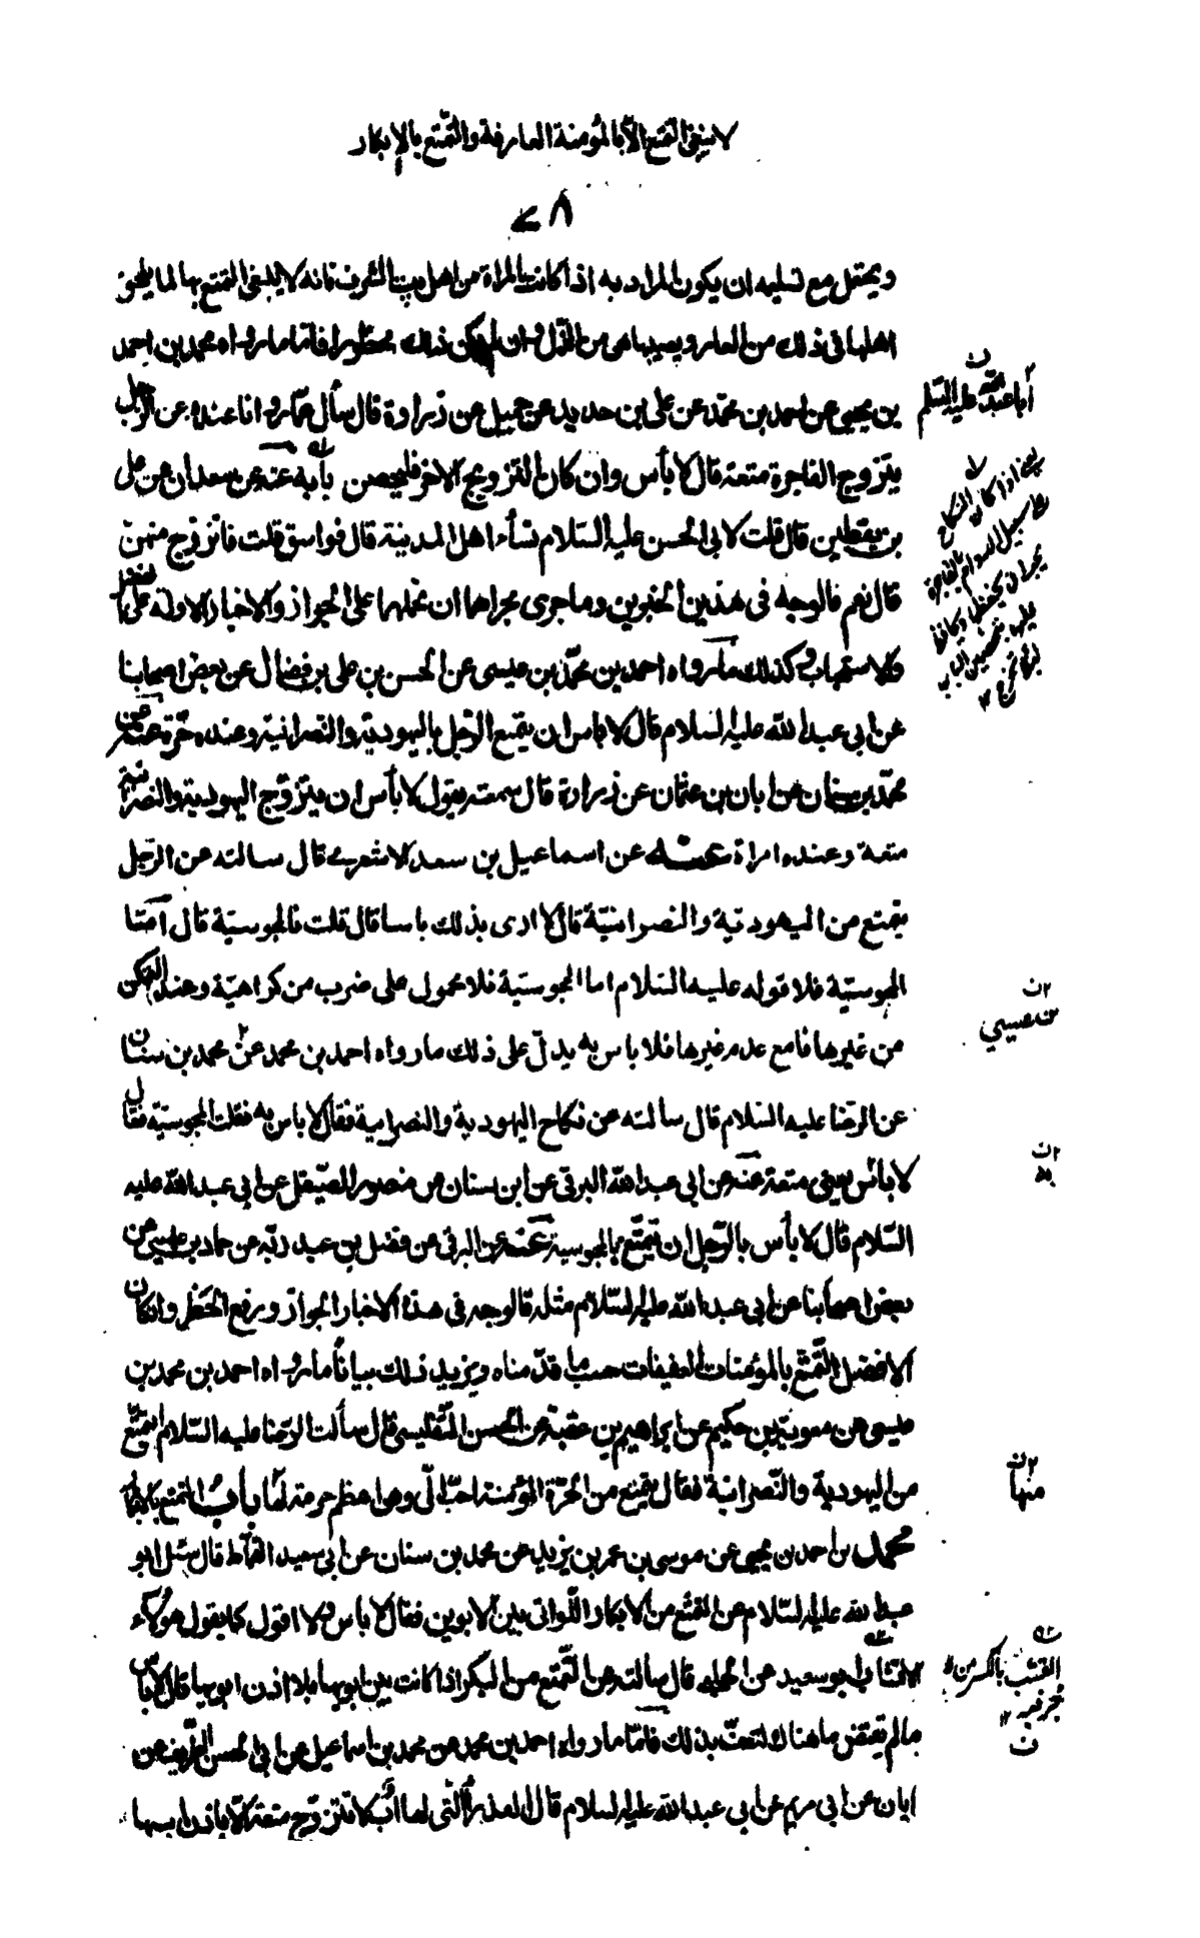 لا ينبغي التمتع الّا بالمؤمنة العارفة والتمّتع بالإبكار
٧٨
ويحتمل مع تسليمه ان يكون المراد به اذا كانت المراة من اهل بيت الشرف فانه لا ينبغي التمتع بها لما يلحق
اهلها في ذلك من العار ويصيبها هي من الذّل وان لم يكن ذلك محظورا فاما ما رواه محمد بن احمد
بن يحيى عن احمد بن محمّد عن على بن حديد عن جميل عن زرارة قال سأل عمّار وانا عنده عن الرجل
يتزوج الفاجرة متعة قال لا بأس وان كان التزويج الاخر فليحصن بأبه عنه عن سعدان عن على
بن يقطين قال قلت لابي الحسن عليه السّلام نسأء اهل المدينة قال فواسق قلت فاتزوج منهنّ
قال نعم فالوجه في هذين الخبرين وما جرى مجراهما ان نحملهما على الجواز والاخبار الاولة على الفضل
والاستحباب وكذلك ما رواه احمد بن محمّد بن عيسى عن الحسن بن على بن فضال عن بعض اصحابنا
عن ابي عبد الله عليه السلام قال لا باس ان يتمتع الرّجل باليهوديّة والنّصرانيّة وعنده حرّة عنه عن
محمّد بن سنان عن ابان بن عثمان عن زرارة قال سمعته يقول لا بأس ان يتزوّج اليهودية والنصرانية
متعة وعنده امراة عنه عن اسماعيل بن سعد الاشعرى قال سالته عن الرّجل
يتمتع من اليهوديّة والنصرانيّة قال لا ارى بذلك باسا قال قلت فالمجوسيّة قال امّا
المجوسيّة فلا قوله عليه السّلام اما المجوسيّة فلا محمول على ضرب من كراهيّة وعند التمكن
من غيرها فامع عدم غيرها فلا باس به يدلّ على ذلك ما رواه احمد بن محمد عن محمد بن سنان
عن الرّضا عليه السّلام قال سالته عن نكاح اليهودية والنصرانية فقال لا باس به فقلت المجوسيّة فقال
لا بأس يعني متعة عنه عن ابي عبد الله البرقي عن ابن سنان عن منصور الصّيقل عن ابي عبد الله عليه
السّلام قال لا بأس بالرّجل ان يتمتّع بالمجوسية عنه عن البرقي عن فضل بن عبد ربّه عن حماد بن عيسى عن
بعض اصحابنا عن ابي عبد الله عليه السّلام مثله فالوجه في هذه الاخبار الجواز ورفع الحظر وان كان
الافضل التّمتّع بالمؤمنات العفيفات حسب ما قدّمناه ويزيد ذلك بيانا ما رواه احمد بن محمد بن
عيسى عن معوية بن حكيم عن ابراهيم بن عقبة عن الحسن التّفليسي قال سألت الرّضا عليه السّلام ايتمتّع
من اليهودية والنّصرانيّة فقال يتمتع من الحرّة المؤمنة احبّ الىّ وهي اعظم حرمة لها باب التمتع بالابكار
محمد بن احمد بن يحيى عن موسى بن عمر بن يزيد عن محمد بن سنان عن ابي سعيد القماّط قال سئل ابو
عبد الله عليه السّلام عن التمتّع من الابكار اللّواتى بين الابوين فقال لا باس ولا اقول كما يقول هؤلاء
الاقشاب ابو سعيد عن الحلبى قال سالته عن التّمتع من البكر اذا كانت بين ابويها بلا اذن ابويها قال لا بأس
ما لم يقتض ما هناك لتعفّ بذلك فامّا ما رواه احمد بن محمد عن محمد بن اسماعيل عن ابي الحسن الظريف عن
ابان عن ابي مريم عن ابي عبد الله عليه السلام قال العذرأ الّتى لها أب لا تتزوّج متعة الّا باذن ابيها
ن
أبا عبد الله عليه السّلم
يعني اذا كان النكاح
على سبيل الدوام بالفاجرة
يجب ان يحفظها
٢ ن
بن عيسى
٢ ن
به
٢ ن
منها
القشب بالكسر من لا
خير فيه ١٢
ن